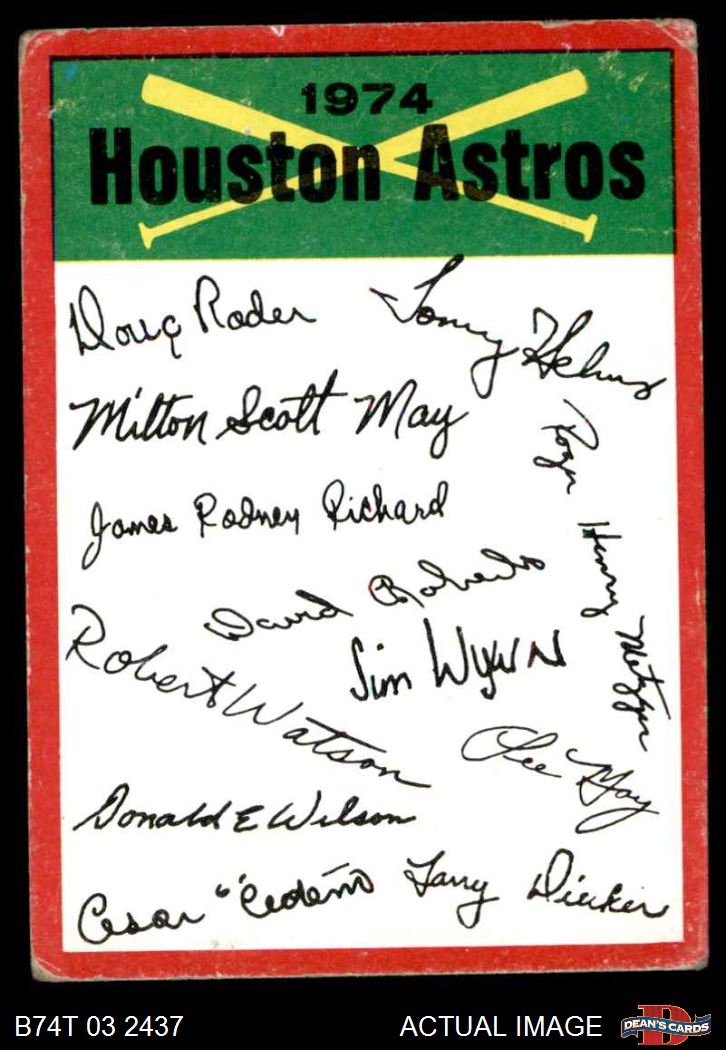 1974
Houston Astros
Doug Rader
Tommy Helms
Milton Scott May
Roger Henry Metzger
James Rodney Richard
David Roberts
Jim Wynn
Robert Watson
Lee May
Donald E Wilson
Cesar "Cedeño
Larry Dierker
B74T 03 2437
ACTUAL IMAGE
D
DEAN'S CARDS